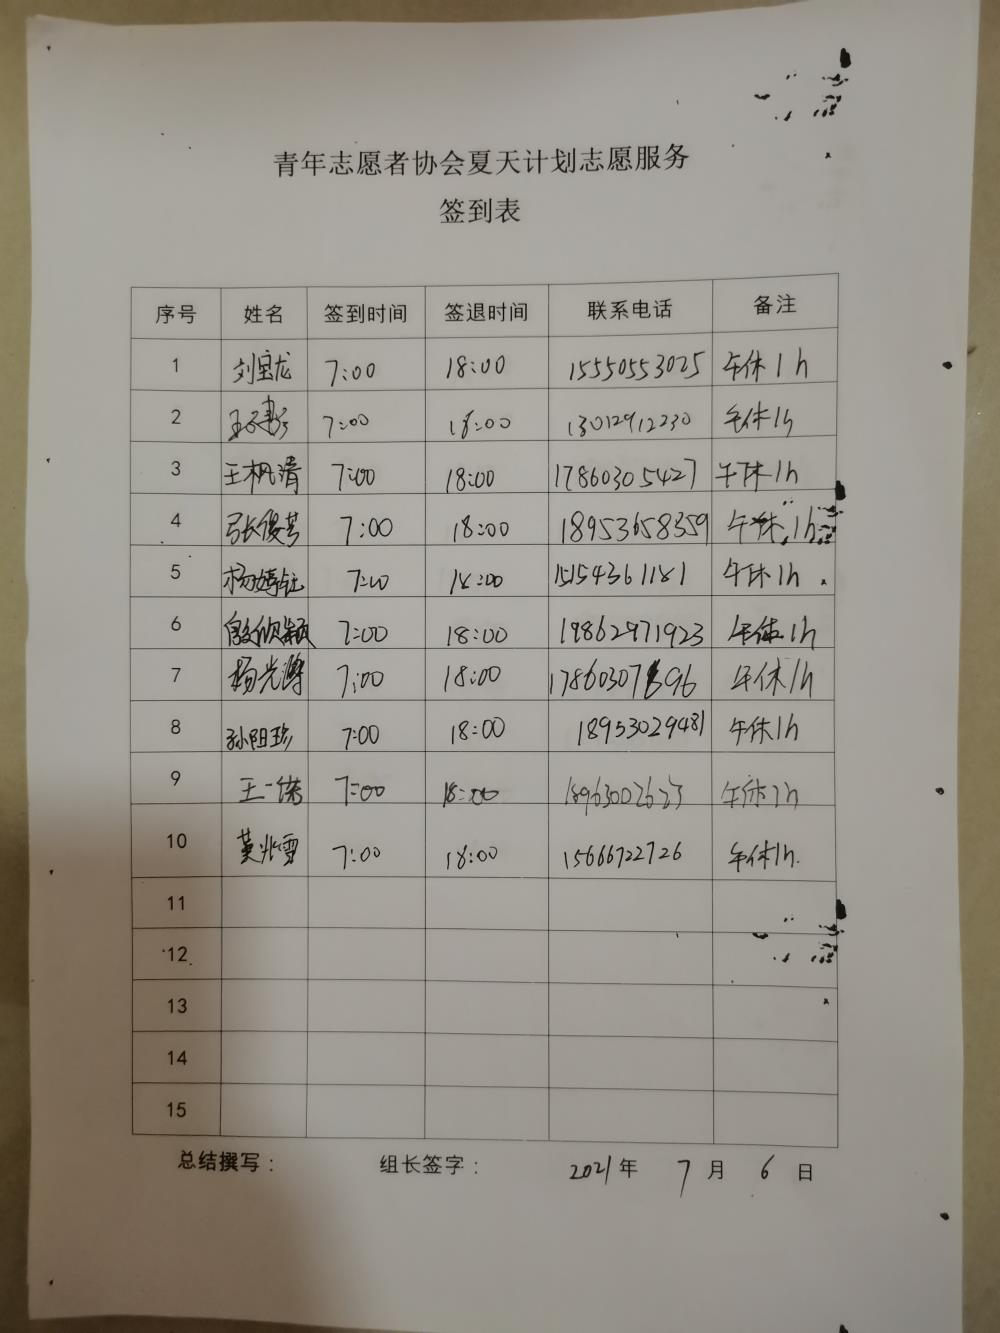 青年志愿者协会夏天计划志愿服务
签到表
序号 姓名 签到时间 签退时间 联系电话 备注
1 刘宝龙 7:00 18:00 15550553025 午休1h
2 7:00 18:00 13012912230 午休1h
3 王枫清 7:00 18:00 17860305427 午休1h
4 张俊芳 7:00 18:00 18953658359 午休1h
5 杨婷钰 7:00 18:00 15154361181 午休1h
6 殷欣颖 7:00 18:00 19862971923 午休1h
7 杨光 7:00 18:00 17860307896 午休1h
8 孙阳珍 7:00 18:00 18953029481 午休1h
9 王一 7:00 18:00 18963002623 午休1h
10 黄兆雪 7:00 18:00 15666722726 午休1h.
11
12
13
14
15
总结撰写： 组长签字： 2021年 7月 6日